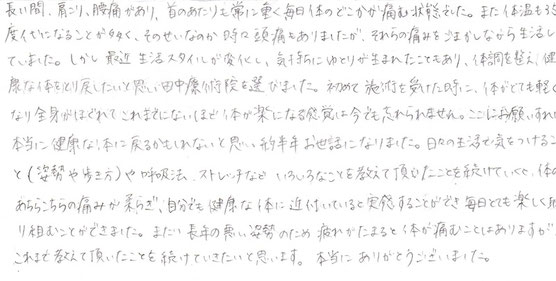 長い間、肩こり、腰痛があり、首のあたりも常に重く毎日体のどこかが痛む状態でした。また体温も35
度台になることが多く、そのせいなのか時々頭痛もありましたが、それらの痛みをごまかしながら生活し
ていました。しかし最近生活スタイルが変化し、気持ちにゆとりが生まれたこともあり、体調を整え、健
康な体をとり戻したいと思い田中療術院を選びました。初めて施術を受けた時に、体がとても軽く
なり全身がほぐれてこれまでにないほど体が楽になる感覚は今でも忘れられません。ここにお願いすれば
本当に健康な体に戻るかもしれないと思い約半年お世話になりました。日々の生活で気をつけるこ
と(姿勢や歩き方)や呼吸法、ストレッチなどいろいろなことを教えて頂いたことを続けていくと、体の
あちらこちらの痛みが柔らぎ、自分でも健康な体に近付いていると実感することができ毎日とても楽しく取
り組むことができました。まだ長年の悪い姿勢のため疲れがたまると体が痛むことはありますが
これまで教えて頂いたことを続けていきたいと思います。本当にありがとうございました。